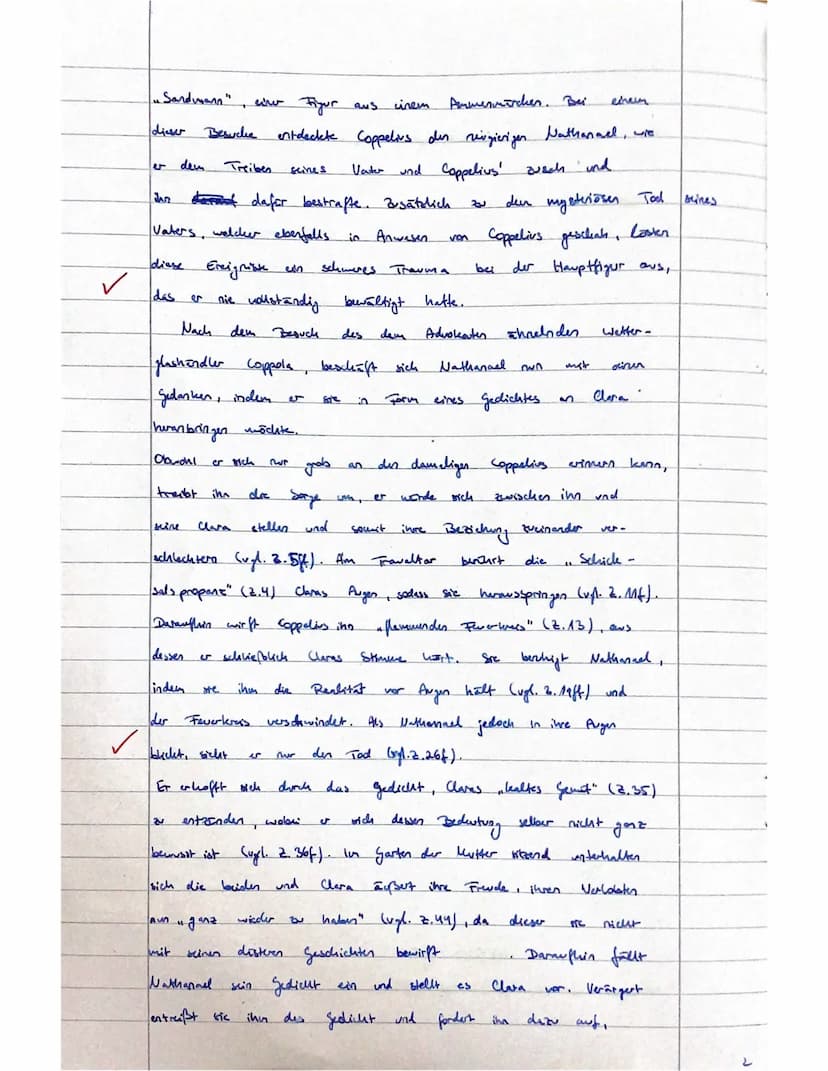 „Sandmann", einer Figur aus einem Ammenmärchen. Bei einem
dieser Besuche entdeckte Coppelius den neugierigen Nathanael, wie
er dem Treiben seines Vater und Coppelius' zusah und
ihn dafür bestrafte. Zusätzlich zu dem mysteriösen Tod seines
Vaters, welcher ebenfalls in Anwesen von Coppelius geschah, lösten
diese Ereignisse ein schweres Trauma bei der Hauptfigur aus,
das er nie vollständig bewältigt hatte.
Nach dem Besuch des dem Advokaten ähnelnden Wetter-
glashändler Coppola, beschäft sich Nathanael nun mit seinen
Gedanken, indem er sie in Form eines Gedichtes an Clara
heranbringen möchte.
Obwohl er sich nur grob an den damaligen Coppelius erinnern kann,
treibt ihn die Sorge um, er würde sich zwischen ihn und
seine Clara stellen und somit ihre Beziehung zueinander ver-
schlechtern (vgl. Z.5ff). Am Traualtar berührt die „Schick-
salspropanz" (Z.4) Claras Augen, sodass sie herausspringen (vgl. Z.11f).
Daraufhin wirft Coppelius ihn „flammenden Feuerkreis" (Z.13), aus
dessen er schließlich Claras Stimme hört. Sie beruhigt Nathanael,
indem sie ihm die Realität vor Augen hält (vgl. Z.19ff) und
der Feuerkreis verschwindet. Als Nathanael jedoch in ihre Augen
blickt, sieht er nur den Tod (vgl. Z.26f).
Er erhofft sich durch das Gedicht, Claras „kaltes Gemüt" (Z.35)
zu entzünden, wobei er sich dessen Bedeutung selber nicht ganz
bewusst ist (vgl. Z.36f). Im Garten der Mutter sitzend unterhalten
sich die beiden und Clara äußert ihre Freude, ihren Verlobten
nun „ganz wieder zu haben" (vgl. Z.44), da dieser sie nicht
mit seinen düsteren Geschichten bewirft. Daraufhin fällt
Nathanael sein Gedicht ein und stellt es Clara vor. Verärgert
entreißt sie ihm das Gedicht und fordert ihn dazu auf,
2